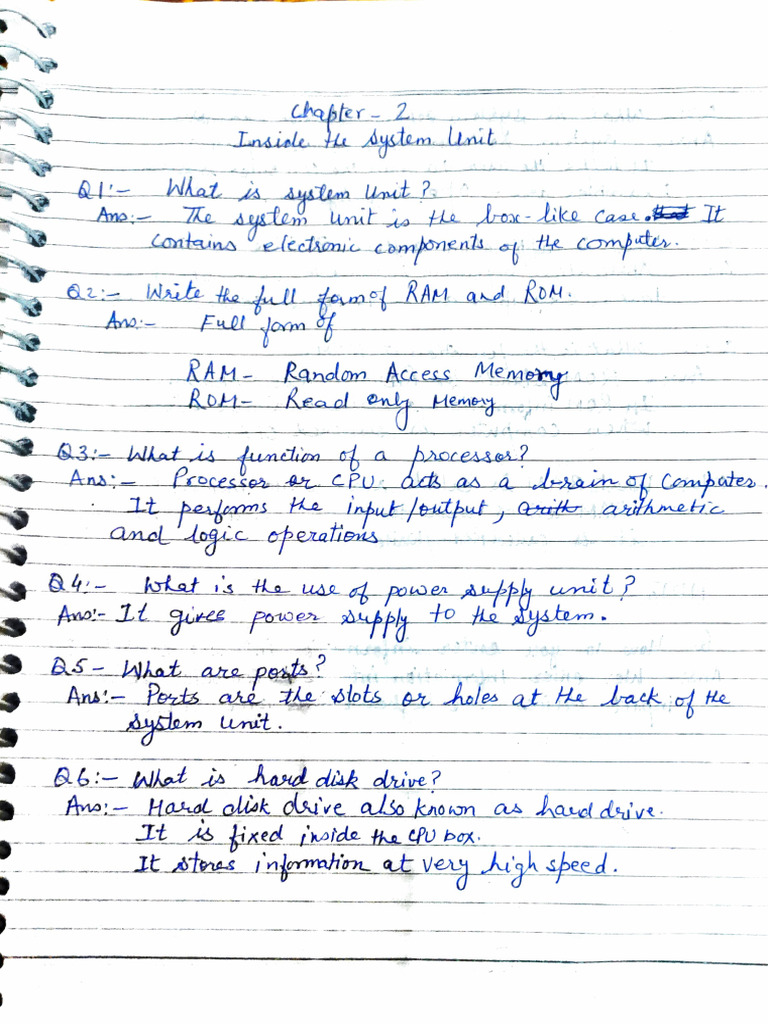 Chapter - 2
Inside the System Unit
Q1:- What is system unit?
Ans:- The system unit is the box-like case. It
contains electronic components of the computer.
Q2:- Write the full form of RAM and ROM.
Ans:- Full form of
RAM- Random Access Memory
ROM- Read only Memory
Q3:- What is function of a processor?
Ans:- Processor or CPU acts as a brain of computer.
It performs the input/output, arith arithmetic
and logic operations
Q4:- What is the use of power supply unit?
Ans:- It gives power supply to the system.
Q5- What are ports?
Ans:- Ports are the slots or holes at the back of the
system unit.
Q6:- What is hard disk drive?
Ans:- Hard disk drive also known as hard drive.
It is fixed inside the CPU box.
It stores information at very high speed.